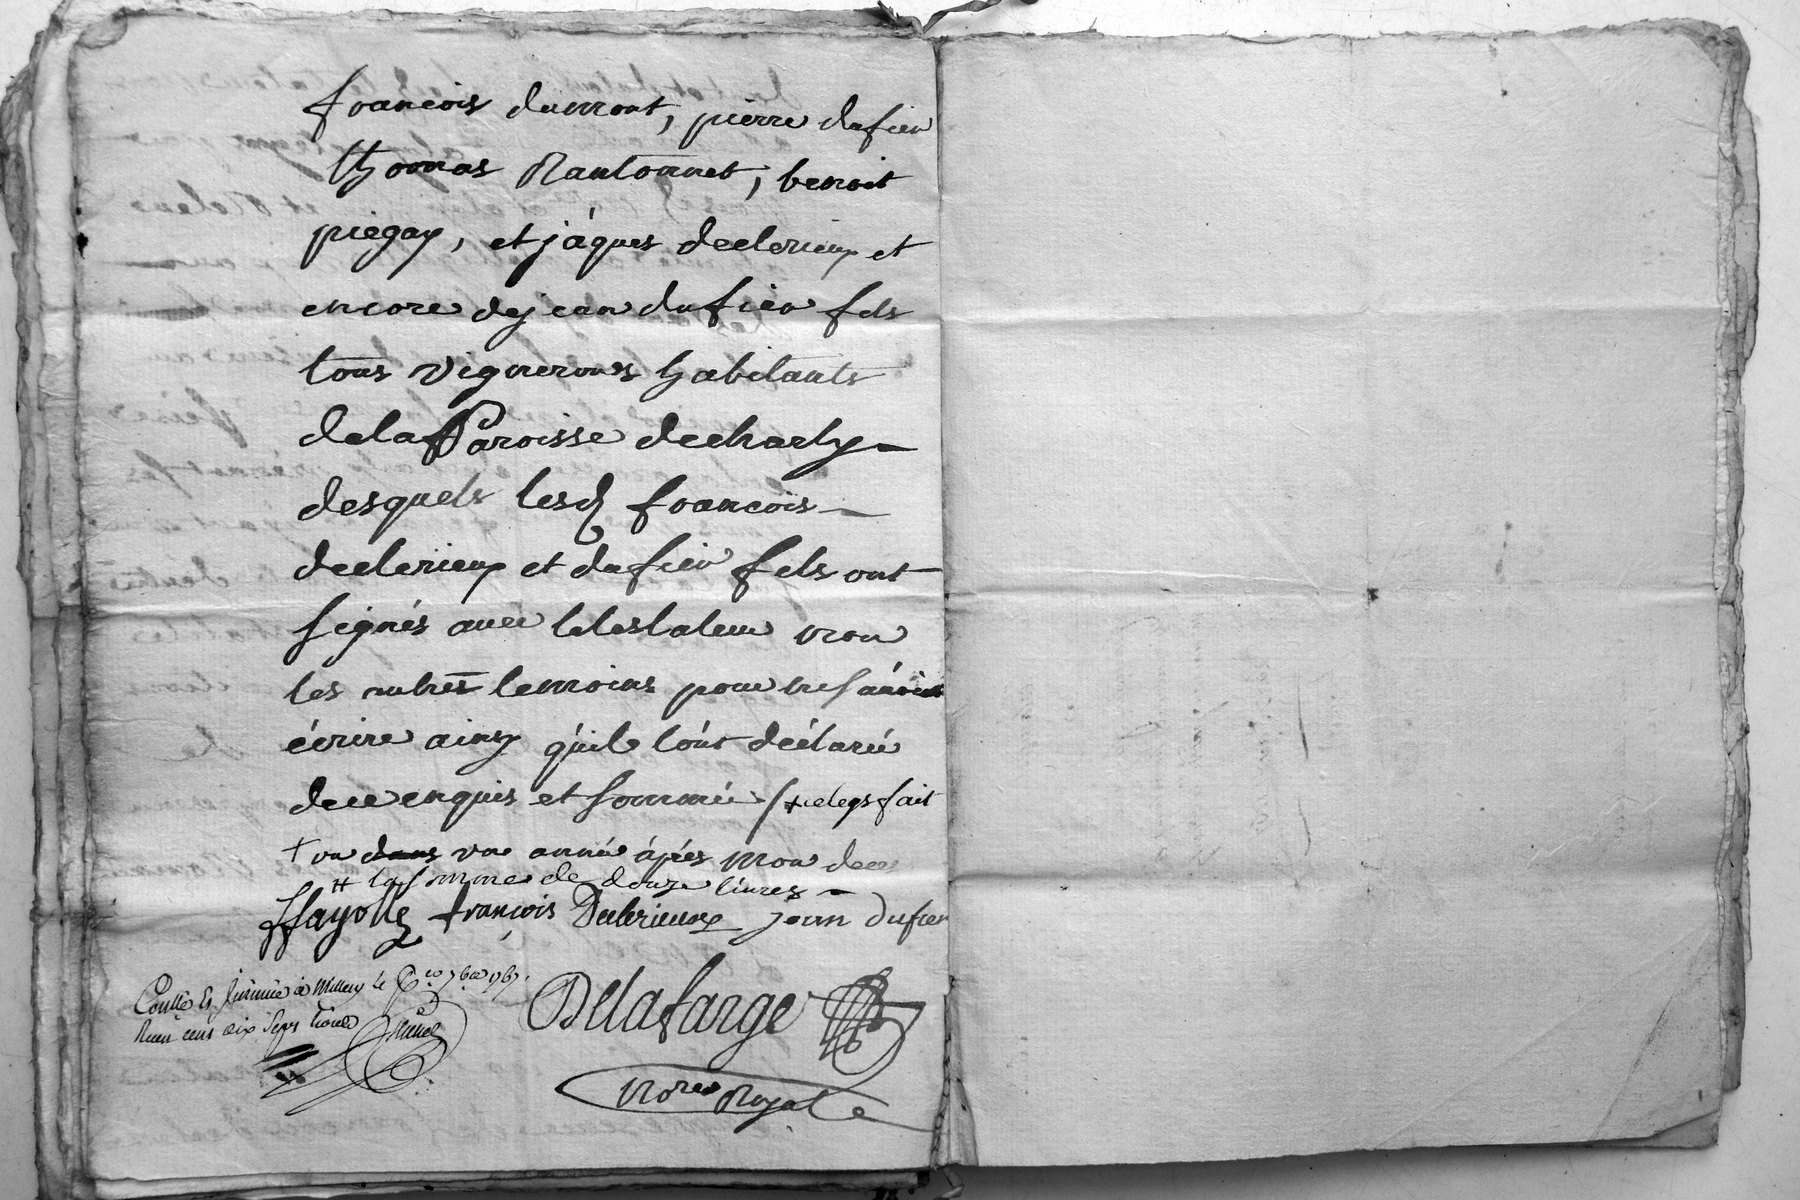 francois dumont, pierre dufieu
thomas Rantonnet, benoit
piegay, et jáques declerieux et
encore dejean dufieu fils
tous vignerons habitants
dela Paroisse decharly
desquels lesd francois
declerieux et dufieu fils ont
signés avec letestateur non
les autres temoins pour ne sávoir
écrire ainsy quil lónt déclaré
dece enquis et sommé /+ celegs fait
+ ou dans une année áprés mon deces
# la somme de douze livres
ffayolle françois Declerieux jean Dufieu
à Millery le 7bre
cens dix sept livres
Delafarge
Nore Royal